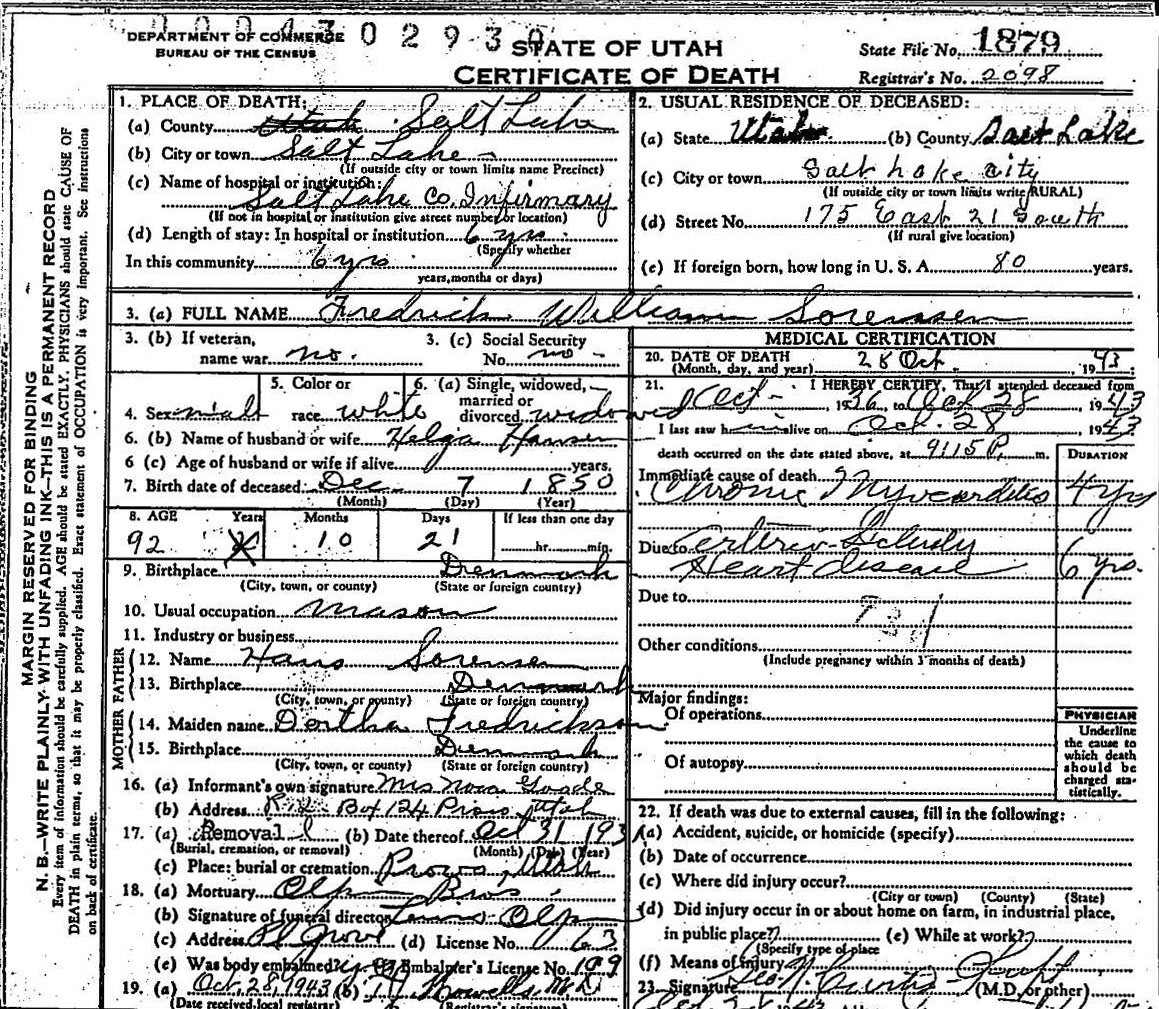 00043029 30
DEPARTMENT OF COMMERCE
BUREAU OF THE CENSUS
STATE OF UTAH
CERTIFICATE OF DEATH
State File No. 1879
Registrar's No. 2098
MARGIN RESERVED FOR BINDING
N. B.—WRITE PLAINLY WITH UNFADING INK—THIS IS A PERMANENT RECORD
Every item of information should be carefully supplied. AGE should be stated EXACTLY. PHYSICIANS should state CAUSE OF
DEATH in plain terms, so that it may be properly classified. Exact statement of OCCUPATION is very important. See instructions
on back of certificate.
1. PLACE OF DEATH:
(a) County Utah Salt Lake
(b) City or town Salt Lake
(If outside city or town limits name Precinct)
(c) Name of hospital or institution:
Salt Lake Co. Infirmary
(If not in hospital or institution give street number or location)
(d) Length of stay: In hospital or institution 6 yrs.
(Specify whether
In this community 6 yrs
years, months or days)
2. USUAL RESIDENCE OF DECEASED:
(a) State Utah (b) County Salt Lake
(c) City or town Salt Lake City
(If outside city or town limits write RURAL)
(d) Street No. 175 East 21 South
(If rural give location)
(e) If foreign born, how long in U. S. A. 80 years.
3. (a) FULL NAME Fredrick William Sorensen
3. (b) If veteran,
name war no.
3. (c) Social Security
No. no
4. Sex male
5. Color or
race white
6. (a) Single, widowed,
married or
divorced widowed
6. (b) Name of husband or wife Helga Hansen
6 (c) Age of husband or wife if alive years.
7. Birth date of deceased: Dec 7 1850
(Month) (Day) (Year)
8. AGE Years Months Days If less than one day
92 10 21 hr. min.
9. Birthplace Denmark
(City, town, or county) (State or foreign country)
10. Usual occupation Mason
11. Industry or business
FATHER
12. Name Hans Sorensen
13. Birthplace Denmark
(City, town, or county) (State or foreign country)
MOTHER
14. Maiden name Dortha Fredrickson
15. Birthplace Denmark
(City, town, or county) (State or foreign country)
16. (a) Informant's own signature Mrs Nora Goade
(b) Address R 2 Box 124 Provo, Utah
17. (a) Removal (b) Date thereof Oct 31 193
(Burial, cremation, or removal) (Month) (Day) (Year)
(c) Place: burial or cremation Provo, Utah
18. (a) Mortuary Olpin Bros.
(b) Signature of funeral director Olpin
(c) Address Pl Grove (d) License No. 163
(e) Was body embalmed? Embalmer's License No. 109
19. (a) Oct. 28, 1943 (b) T. J. Howells, M.D.
(Date received local registrar) (Registrar's signature)
MEDICAL CERTIFICATION
20. DATE OF DEATH 28 Oct. , 1943
(Month, day, and year)
21. I HEREBY CERTIFY, That I attended deceased from
Oct , 1936, to Oct 28 , 1943
I last saw him alive on Oct. 28 , 1943
death occurred on the date stated above, at 9:15 P. m.
DURATION
Immediate cause of death
Chronic Myocarditis 4 yrs
Due to Arterio-
Heart disease 6 yrs.
Due to
Other conditions
(Include pregnancy within 3 months of death)
Major findings:
Of operations
Of autopsy
PHYSICIAN
Underline
the cause to
which death
should be
charged sta-
tistically.
22. If death was due to external causes, fill in the following:
(a) Accident, suicide, or homicide (specify)
(b) Date of occurrence
(c) Where did injury occur?
(City or town) (County) (State)
(d) Did injury occur in or about home on farm, in industrial place,
in public place? (e) While at work?
(Specify type of place
(f) Means of injury
23. Signature Geo. N. Curtis (M.D. or other)